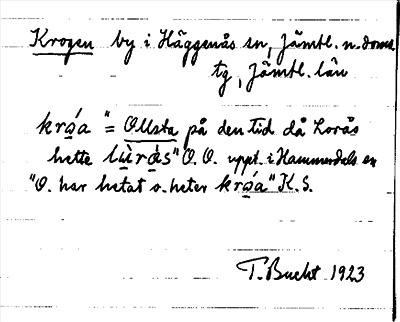 Krogen by i Häggenås sn, Jämtl. n. doms
tg, Jämtl. län
kro̱´a "= Ollsta på den tid då Lorås
hette lu̱̇rȯ̱s" O.O. uppt. i Hammerdals sn
"O. har hetat o. heter kro̱´a" K.S.
T. Bucht 1923